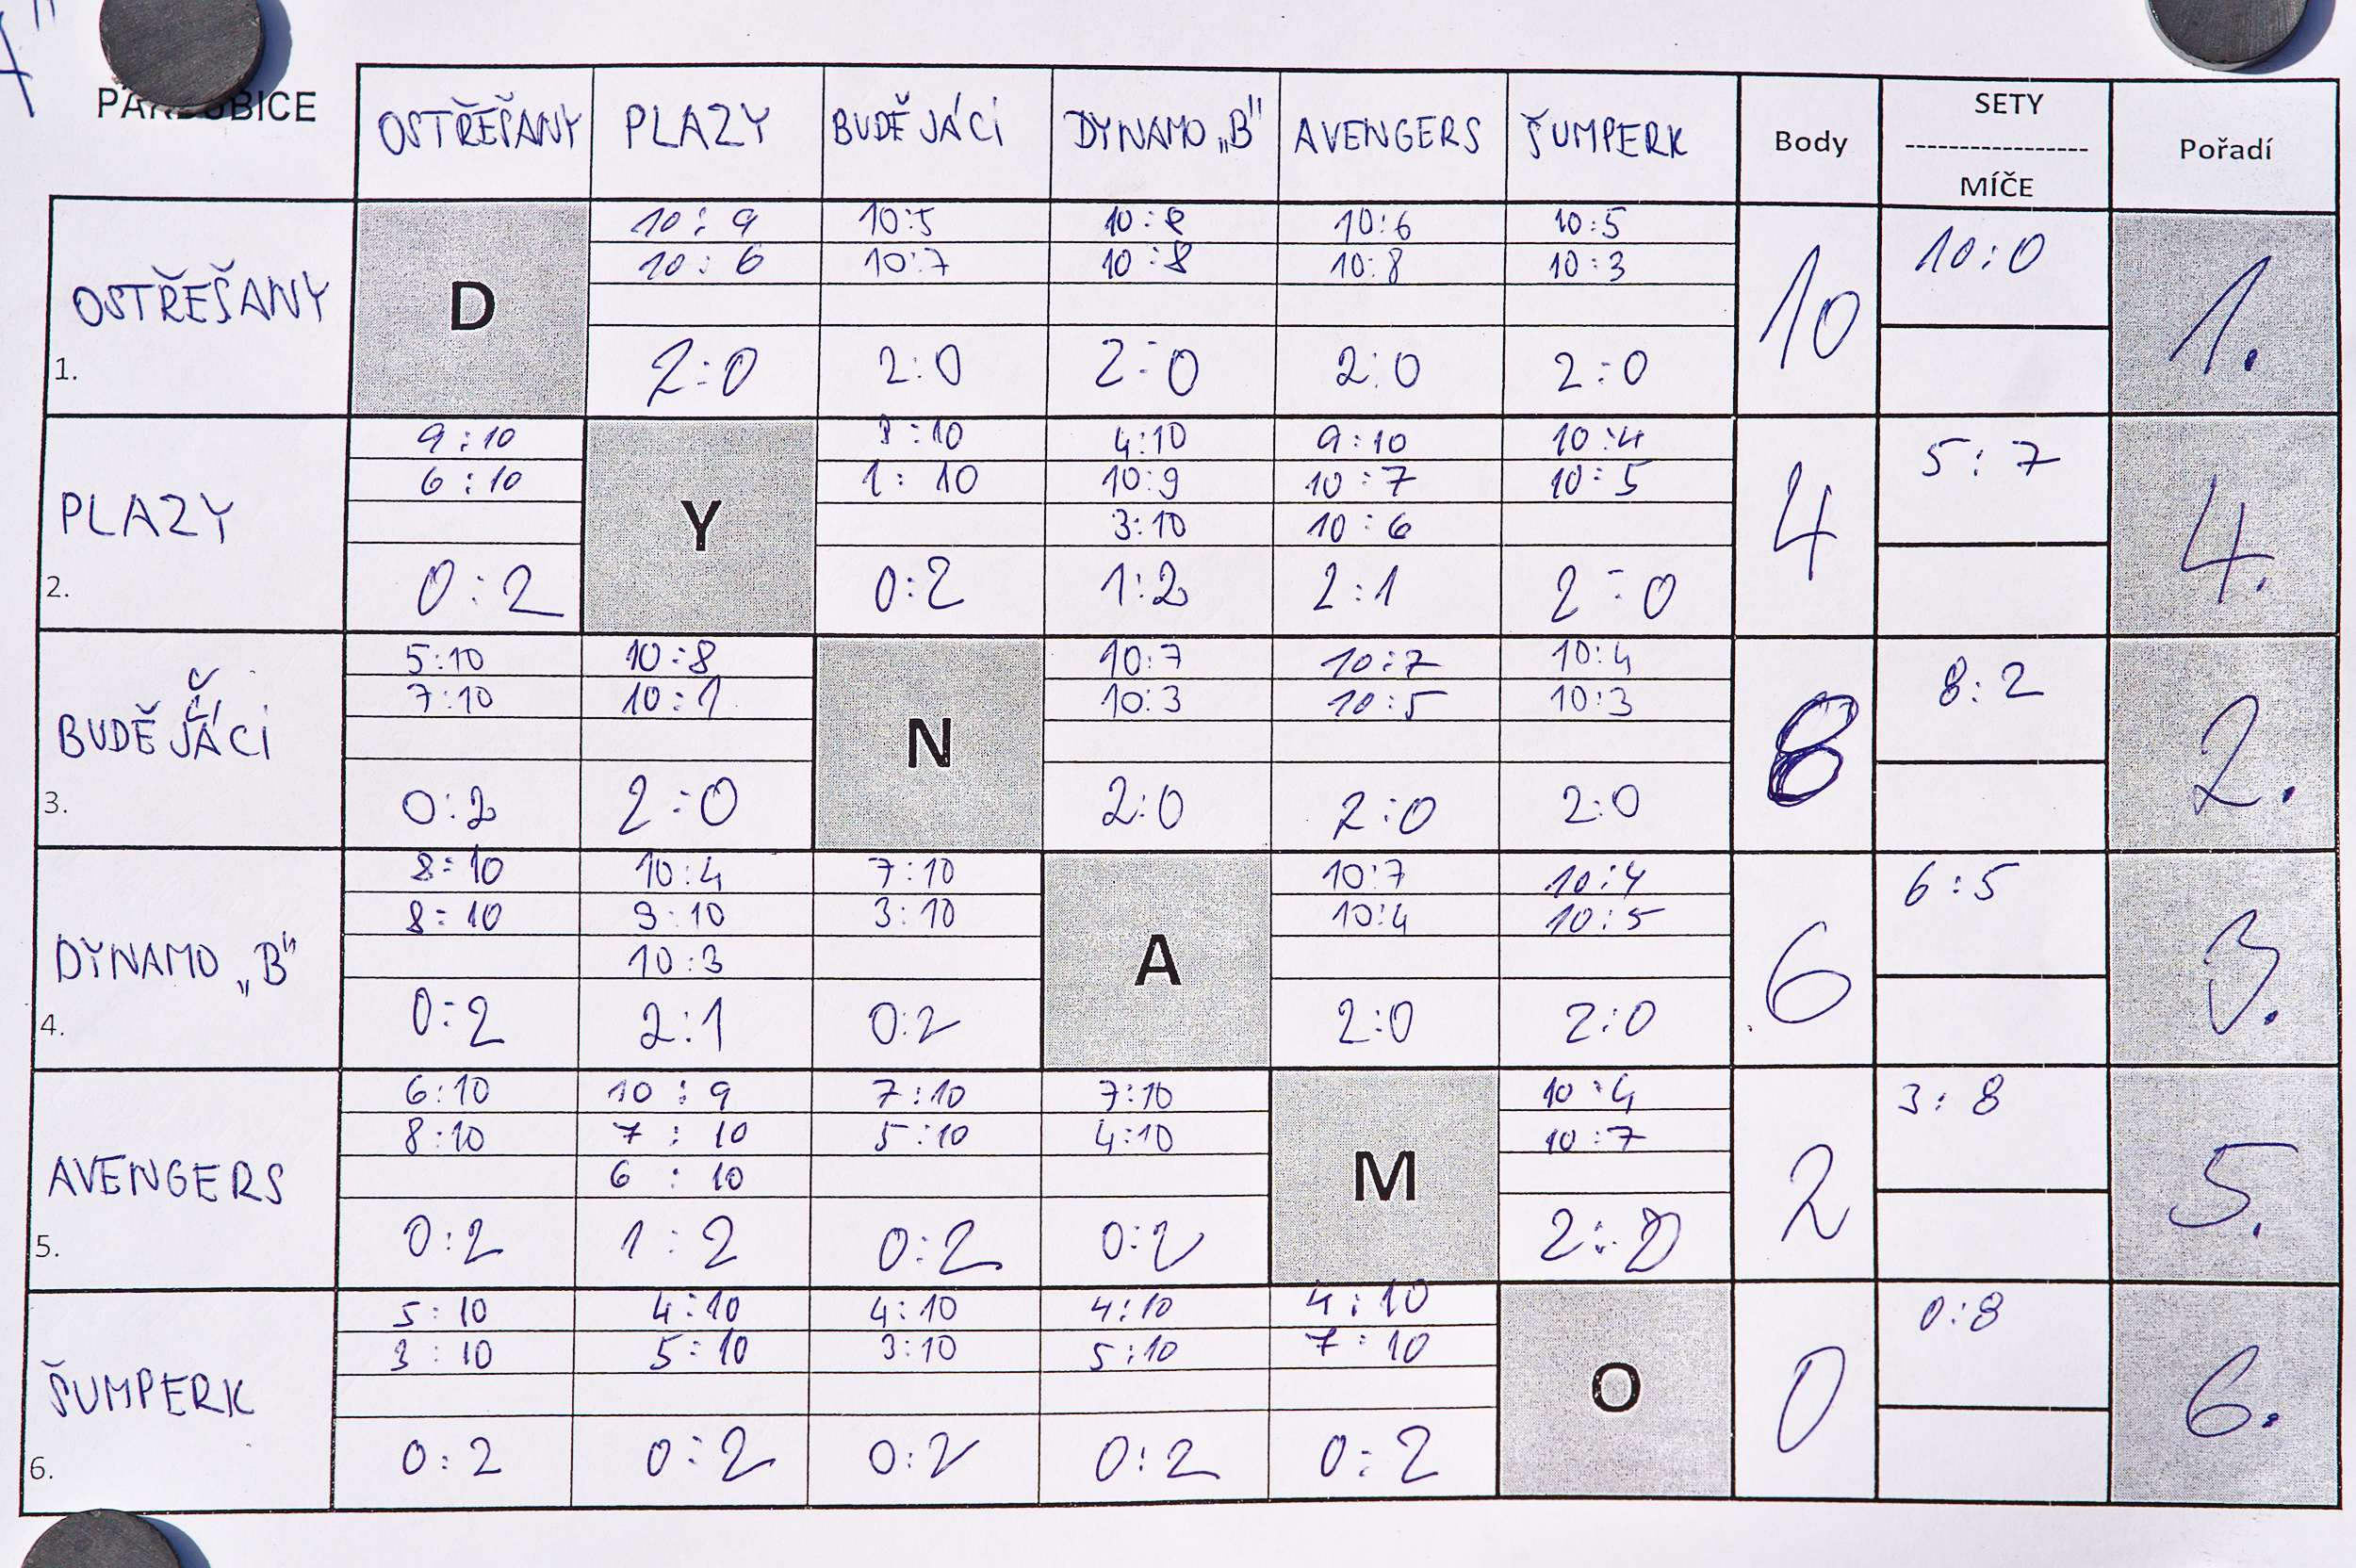 PARDUBICE OSTŘEŠANY PLAZY BUDĚJÁCI DYNAMO „B" AVENGERS ŠUMPERK Body SETY ----------------- MÍČE Pořadí
OSTŘEŠANY 1.
D
10:9 10:5 10:8 10:6 10:5
10:6 10:7 10:8 10:8 10:3
2:0 2:0 2:0 2:0 2:0
10 10:0 1.
PLAZY 2.
9:10 8:10 4:10 9:10 10:4
6:10 1:10 10:9 10:7 10:5
3:10 10:6
0:2 Y 0:2 1:2 2:1 2:0
4 5:7 4.
BUDĚJÁČCI 3.
5:10 10:8 10:7 10:7 10:4
7:10 10:1 10:3 10:5 10:3
0:2 2:0 N 2:0 2:0 2:0
8 8:2 2.
DYNAMO „B" 4.
8:10 10:4 7:10 10:7 10:4
8:10 9:10 3:10 10:4 10:5
10:3
0:2 2:1 0:2 A 2:0 2:0
6 6:5 3.
AVENGERS 5.
6:10 10:9 7:10 7:10 10:4
8:10 7:10 5:10 4:10 10:7
6:10
0:2 1:2 0:2 0:2 M 2:0
2 3:8 5.
ŠUMPERK 6.
5:10 4:10 4:10 4:10 4:10
3:10 5:10 3:10 5:10 7:10
0:2 0:2 0:2 0:2 0:2 O
0 0:8 6.